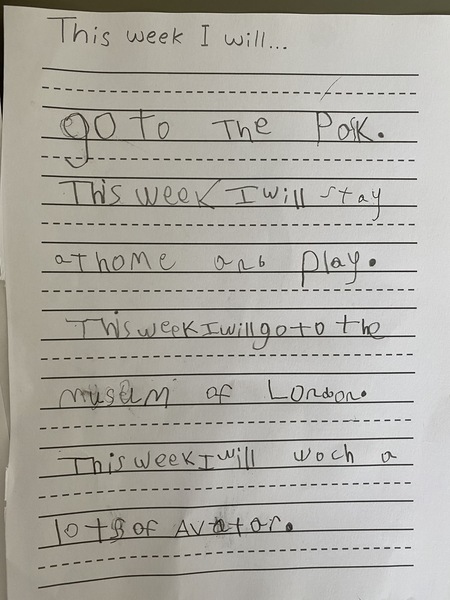 This week I will...
go to The Park.
This week I will stay
at home anb play.
This week I will go to the
museum of London.
This week I will woch a
lots of Avatar.